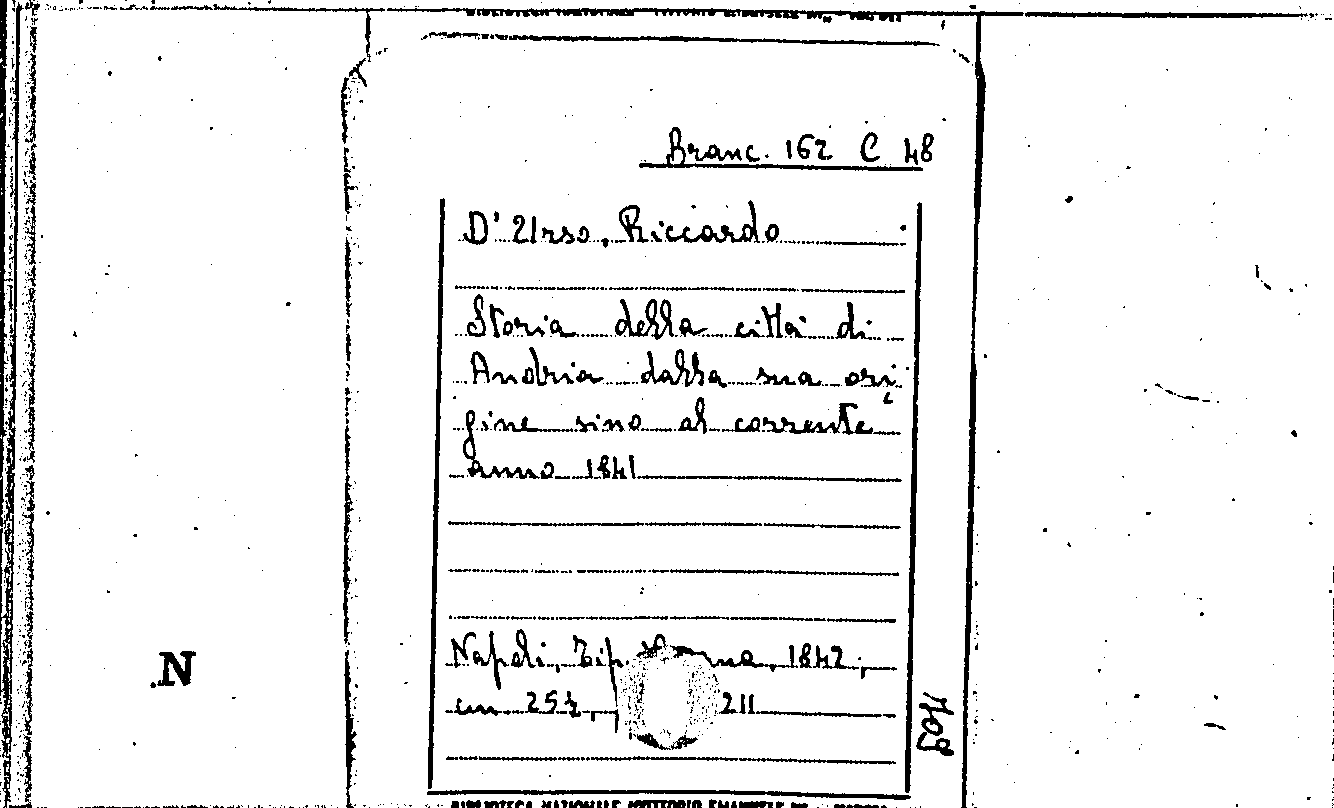 Branc. 162 C 48
D'Urso, Riccardo
Storia della città di
Andria dalla sua ori
gine sino al corrente
anno 1841
Napoli, Tip. 1842,
cm 25½, 211
1709
N
BIBLIOTECA NAZIONALE VITTORIO EMANUELE III